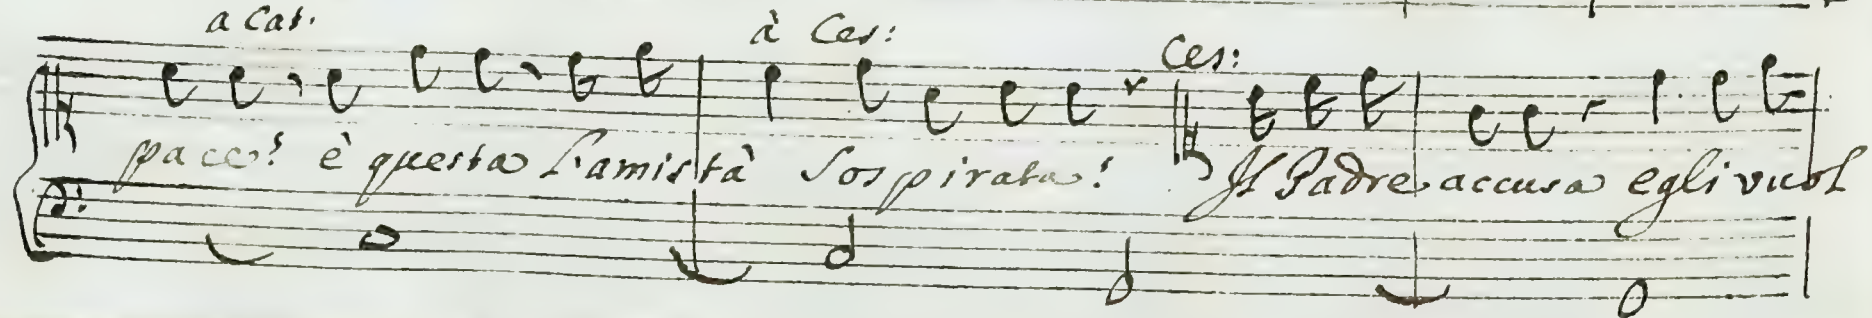 a Cat. à Ces: Ces:
pace! è questa L'amistà Sospirata! Il Padre accusa egli vuol